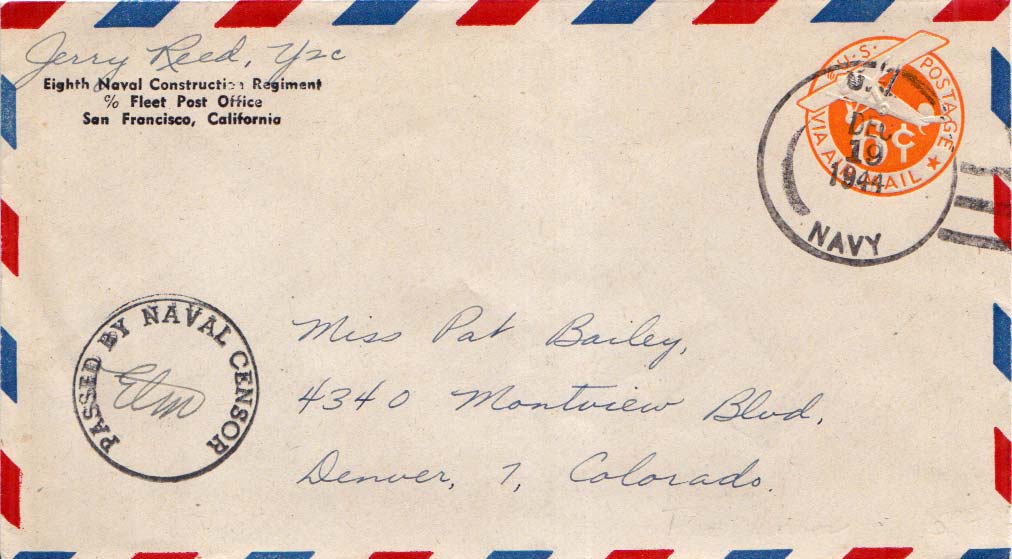 Jerry Reed, Y2c
Eighth Naval Construction Regiment
c/o Fleet Post Office
San Francisco, California
U.S. POSTAGE
6¢
VIA AIRMAIL
DEC
19
1944
NAVY
PASSED BY NAVAL CENSOR
Miss Pat Bailey,
4340 Montview Blvd,
Denver, 7, Colorado.